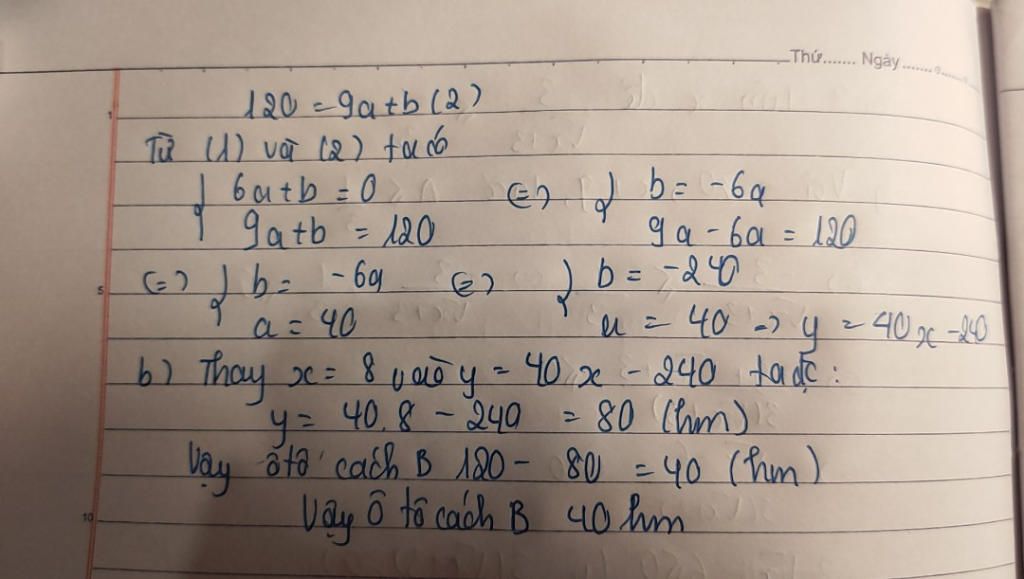 Thứ....... Ngày...........
120 = 9a+b (2)
Từ (1) và (2) ta có
{ 6a+b = 0 (=) { b = -6a
9a+b = 120 9a - 6a = 120
(=) { b = -6a (=) { b = -240
a = 40 a = 40 => y = 40x - 240
b) Thay x = 8 vào y = 40x - 240 ta đc :
y = 40.8 - 240 = 80 (km)
Vậy ô tô cách B 120 - 80 = 40 (km)
Vậy Ô tô cách B 40 km
5
10